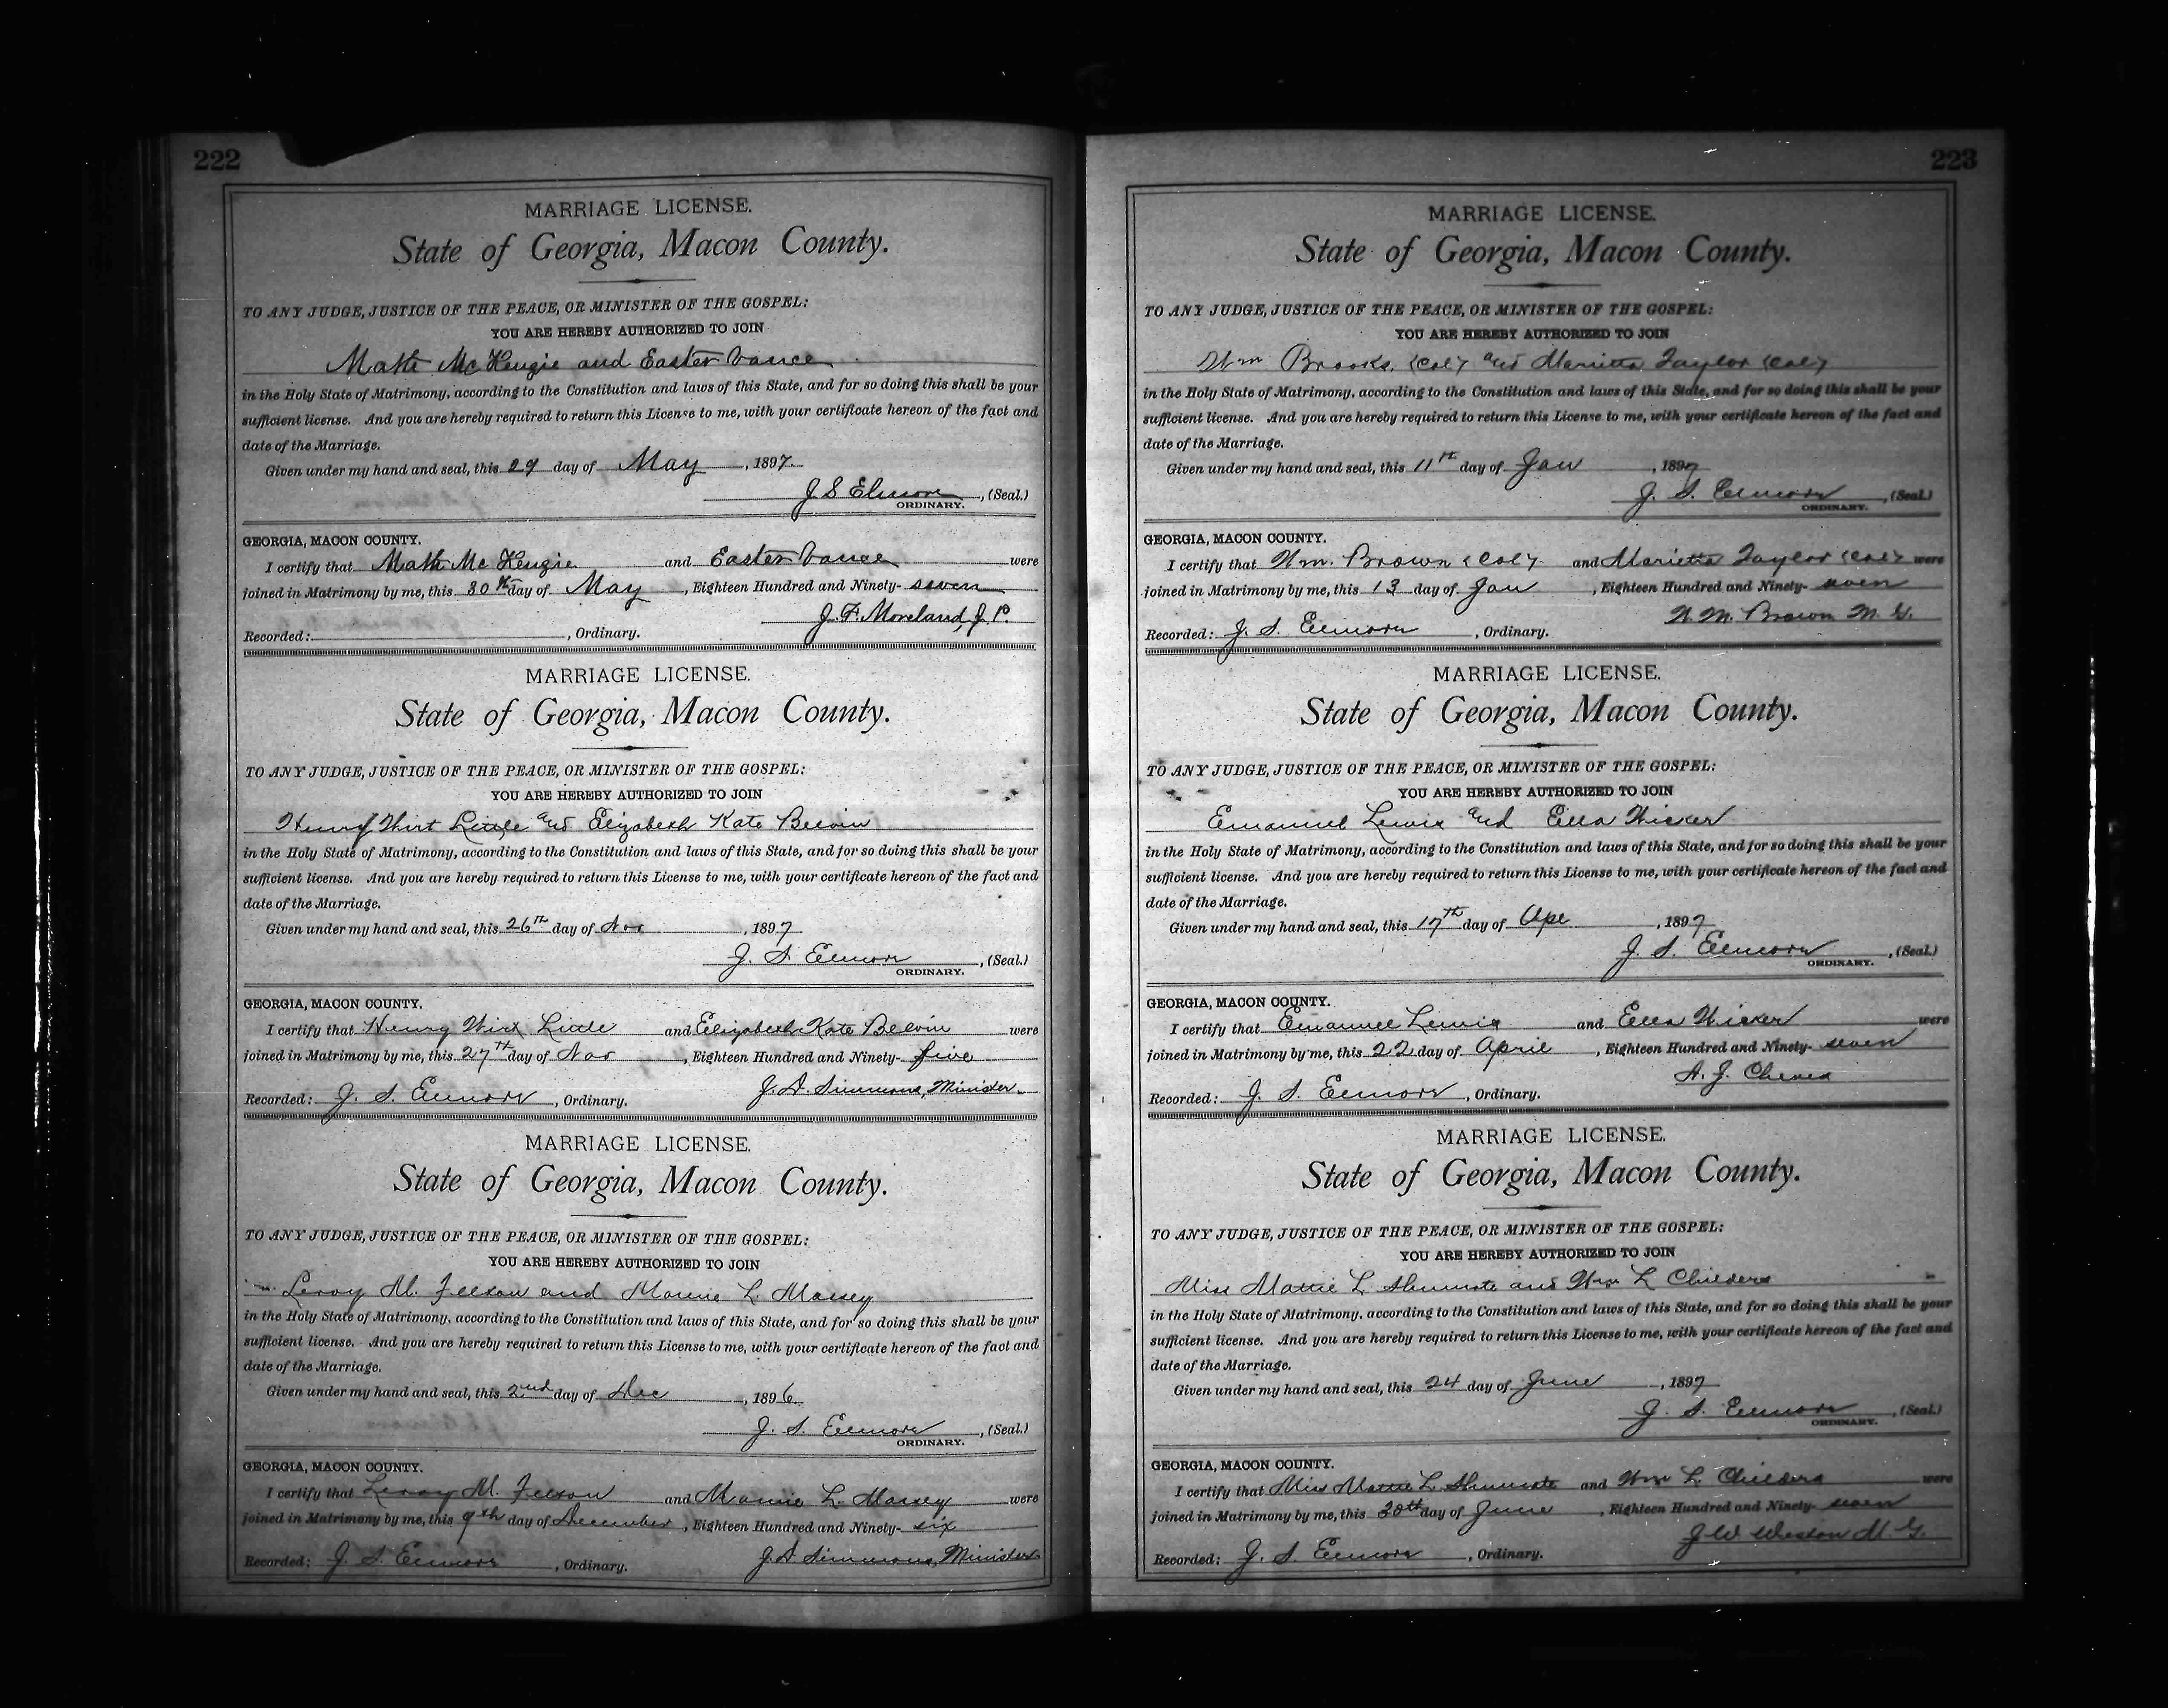 222
MARRIAGE LICENSE.
State of Georgia, Macon County.
TO ANY JUDGE, JUSTICE OF THE PEACE, OR MINISTER OF THE GOSPEL:
YOU ARE HEREBY AUTHORIZED TO JOIN
Math McKenzie and Easter Vance
in the Holy State of Matrimony, according to the Constitution and laws of this State, and for so doing this shall be your
sufficient license. And you are hereby required to return this License to me, with your certificate hereon of the fact and
date of the Marriage.
Given under my hand and seal, this 29 day of May, 1897.
J S Elmore, (Seal.)
ORDINARY.
GEORGIA, MACON COUNTY.
I certify that Math McKenzie and Easter Vance were
joined in Matrimony by me, this 30th day of May, Eighteen Hundred and Ninety-seven
J. F. Moreland, J. P.
Recorded: , Ordinary.
MARRIAGE LICENSE.
State of Georgia, Macon County.
TO ANY JUDGE, JUSTICE OF THE PEACE, OR MINISTER OF THE GOSPEL:
YOU ARE HEREBY AUTHORIZED TO JOIN
Henry Wirt Little and Elizabeth Kate Belvin
in the Holy State of Matrimony, according to the Constitution and laws of this State, and for so doing this shall be your
sufficient license. And you are hereby required to return this License to me, with your certificate hereon of the fact and
date of the Marriage.
Given under my hand and seal, this 26th day of Nov, 1897
J. S. Elmore, (Seal.)
ORDINARY.
GEORGIA, MACON COUNTY.
I certify that Henry Wirt Little and Elizabeth Kate Belvin were
joined in Matrimony by me, this 27th day of Nov, Eighteen Hundred and Ninety-five
J. D. Simmons, Minister.
Recorded: J. S. Elmore, Ordinary.
MARRIAGE LICENSE.
State of Georgia, Macon County.
TO ANY JUDGE, JUSTICE OF THE PEACE, OR MINISTER OF THE GOSPEL:
YOU ARE HEREBY AUTHORIZED TO JOIN
Leroy M. Felton and Mamie L. Massey
in the Holy State of Matrimony, according to the Constitution and laws of this State, and for so doing this shall be your
sufficient license. And you are hereby required to return this License to me, with your certificate hereon of the fact and
date of the Marriage.
Given under my hand and seal, this 2nd day of Dec, 1896.
J. S. Elmore, (Seal.)
ORDINARY.
GEORGIA, MACON COUNTY.
I certify that Leroy M. Felton and Mamie L. Massey were
joined in Matrimony by me, this 9th day of December, Eighteen Hundred and Ninety-six
J. D. Simmons, Minister
Recorded: J. S. Elmore, Ordinary.
223
MARRIAGE LICENSE.
State of Georgia, Macon County.
TO ANY JUDGE, JUSTICE OF THE PEACE, OR MINISTER OF THE GOSPEL:
YOU ARE HEREBY AUTHORIZED TO JOIN
Wm Brooks (Col) and Marietta Taylor (Col)
in the Holy State of Matrimony, according to the Constitution and laws of this State, and for so doing this shall be your
sufficient license. And you are hereby required to return this License to me, with your certificate hereon of the fact and
date of the Marriage.
Given under my hand and seal, this 11th day of Jan, 1897
J. S. Elmore, (Seal.)
ORDINARY.
GEORGIA, MACON COUNTY.
I certify that Wm. Brown (Col) and Marietta Taylor (Col) were
joined in Matrimony by me, this 13 day of Jan, Eighteen Hundred and Ninety-seven
Brown M. G.
Recorded: J. S. Elmore, Ordinary.
MARRIAGE LICENSE.
State of Georgia, Macon County.
TO ANY JUDGE, JUSTICE OF THE PEACE, OR MINISTER OF THE GOSPEL:
YOU ARE HEREBY AUTHORIZED TO JOIN
Emanuel Lewis and Ella Wicker
in the Holy State of Matrimony, according to the Constitution and laws of this State, and for so doing this shall be your
sufficient license. And you are hereby required to return this License to me, with your certificate hereon of the fact and
date of the Marriage.
Given under my hand and seal, this 17th day of Apl, 1897
J. S. Elmore, (Seal.)
ORDINARY.
GEORGIA, MACON COUNTY.
I certify that Emanuel Lewis and Ella Wicker were
joined in Matrimony by me, this 22 day of April, Eighteen Hundred and Ninety-seven
J. Cheves
Recorded: J. S. Elmore, Ordinary.
MARRIAGE LICENSE.
State of Georgia, Macon County.
TO ANY JUDGE, JUSTICE OF THE PEACE, OR MINISTER OF THE GOSPEL:
YOU ARE HEREBY AUTHORIZED TO JOIN
Miss Mattie L Shumate and Wm L Childers
in the Holy State of Matrimony, according to the Constitution and laws of this State, and for so doing this shall be your
sufficient license. And you are hereby required to return this License to me, with your certificate hereon of the fact and
date of the Marriage.
Given under my hand and seal, this 24 day of June, 1897
J. S. Elmore, (Seal.)
ORDINARY.
GEORGIA, MACON COUNTY.
I certify that Miss Mattie L. Shumate and Wm L. Childers were
joined in Matrimony by me, this 30th day of June, Eighteen Hundred and Ninety-seven
J W Weston M G.
Recorded: J. S. Elmore, Ordinary.